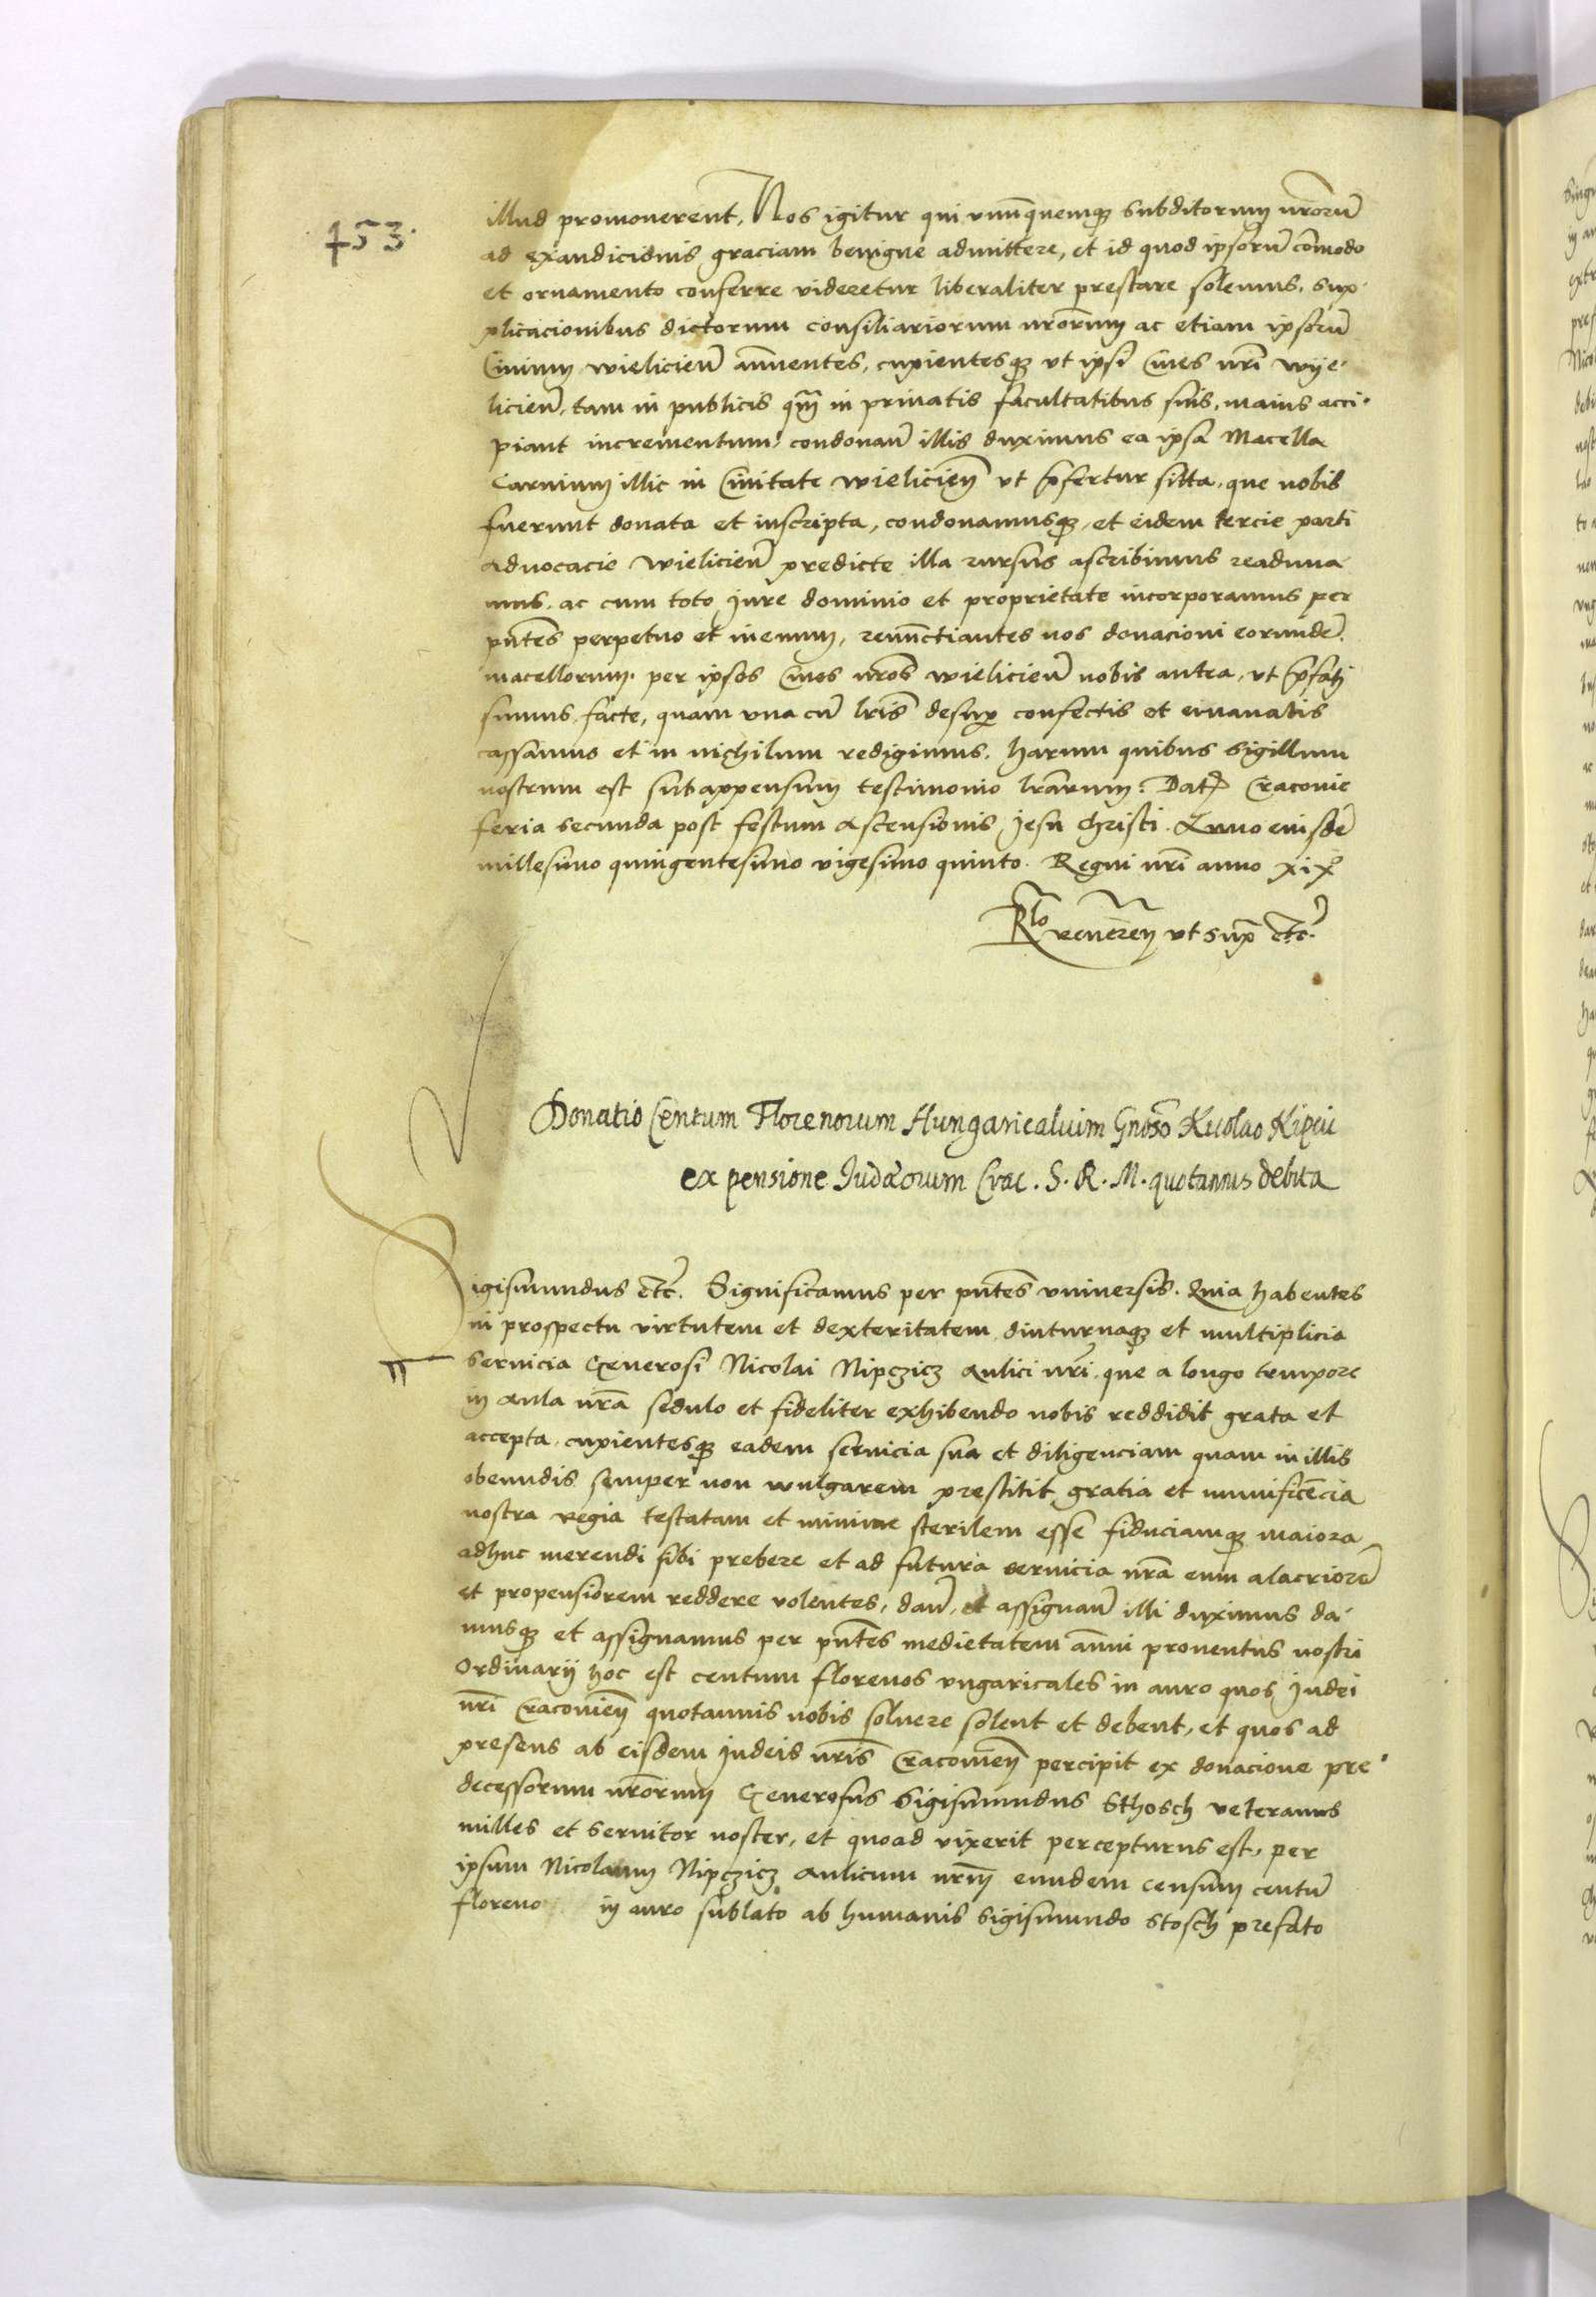 453.
illud promoverent, Nos igitur qui unumquemque subditorum nr̃orum̃
ad exaudicionis graciam benigne admittere, et id quod ipsorum̃ com̃odo
et ornamento conferre videretur liberaliter prestare solemus, sup-
plicacionibus dictorum consiliariorum nr̃orum ac etiam ipsorum̃
Civium Wielicien̄ annuentes, cupientesque ut ipsi Cives nr̃i Wye-
licien̄, tam in publicis qm̃ in privatis facultatibus suis, maius acci-
piant incrementum, condonan̄ illis duximus ea ipsa Macella
Carnium illic in Civitate Wielicien̄ ut p̃fertur sitta, que nobis
fuerunt donata et inscripta, condonamusque, et eidem tercie parti
advocacie Wielicien̄ predicte illa rursus ascribimus readuna
mus, ac cum toto Jure dominio et proprietate incorporamus per
pñtes perpetuo et in evum, renunctiantes nos donacioni eorundẽ
macellorum per ipsos Cives nr̃os Wielicien̄ nobis antea, ut p̃fati
sumus, facte, quam una cũ lr̃is desup̱ confectis et emanatis
cassamus et in nichilum redigimus. Harum quibus Sigillum
nostrum est subappensum testimonio lr̃arum. Dat̃ Cracovie
feria secunda post festum Ascensionis Jesu Christi. Anno eiusdẽ
millesimo quingentesimo vigesimo quinto. Regni nr̃i anno xix°
Rlo veneren̄ ut sup̃ etc̃
Donatio Centum Florenorum Hungaricalium Gnoso Nicolao Nipcic
ex pensione Judæorum Crac. S. R. M. quotannis debita
Sigismundus etc̃. Significamus per pñtes universis. Quia habentes
in prospectu virtutem et dexteritatem diuturnaque et multiplicia
servicia Generosi Nicolai Nipczicz Aulici nr̃i, que a longo tempore
in Aula nr̃a sedulo et fideliter exhibendo nobis reddidit grata et
accepta, cupientesque eadem servicia sua et diligenciam quam in illis
obeundis semper non vulgarem prestitit gratia et munificẽcia
nostra regia testatam et minime sterilem esse fiduciamque maiora
adhuc merendi sibi prebere et ad futura servicia nr̃a eum alacriorẽ
et propensiorem reddere volentes, dan̄, et assignan̄ illi duximus da-
musque et assignamus per pñtes medietatem annui proventus nostri
Ordinarij hoc est centum florenos ungaricales in auro quos Judei
nr̃i Cracovien̄ quotannis nobis solvere solent et debent, et quos ad
presens ab eisdem Judeis nr̃is Cracovien̄ percipit ex donacione pre-
decessorum nr̃orum Generosus Sigismundus Sthosch veteranus
milles et servitor noster, et quoad vixerit percepturus est, per
ipsum Nicolaum Nipczicz Aulicum nr̃m eundem censum centũ
floreno in auro sublato ab humanis Sigismundo Stosch prefato